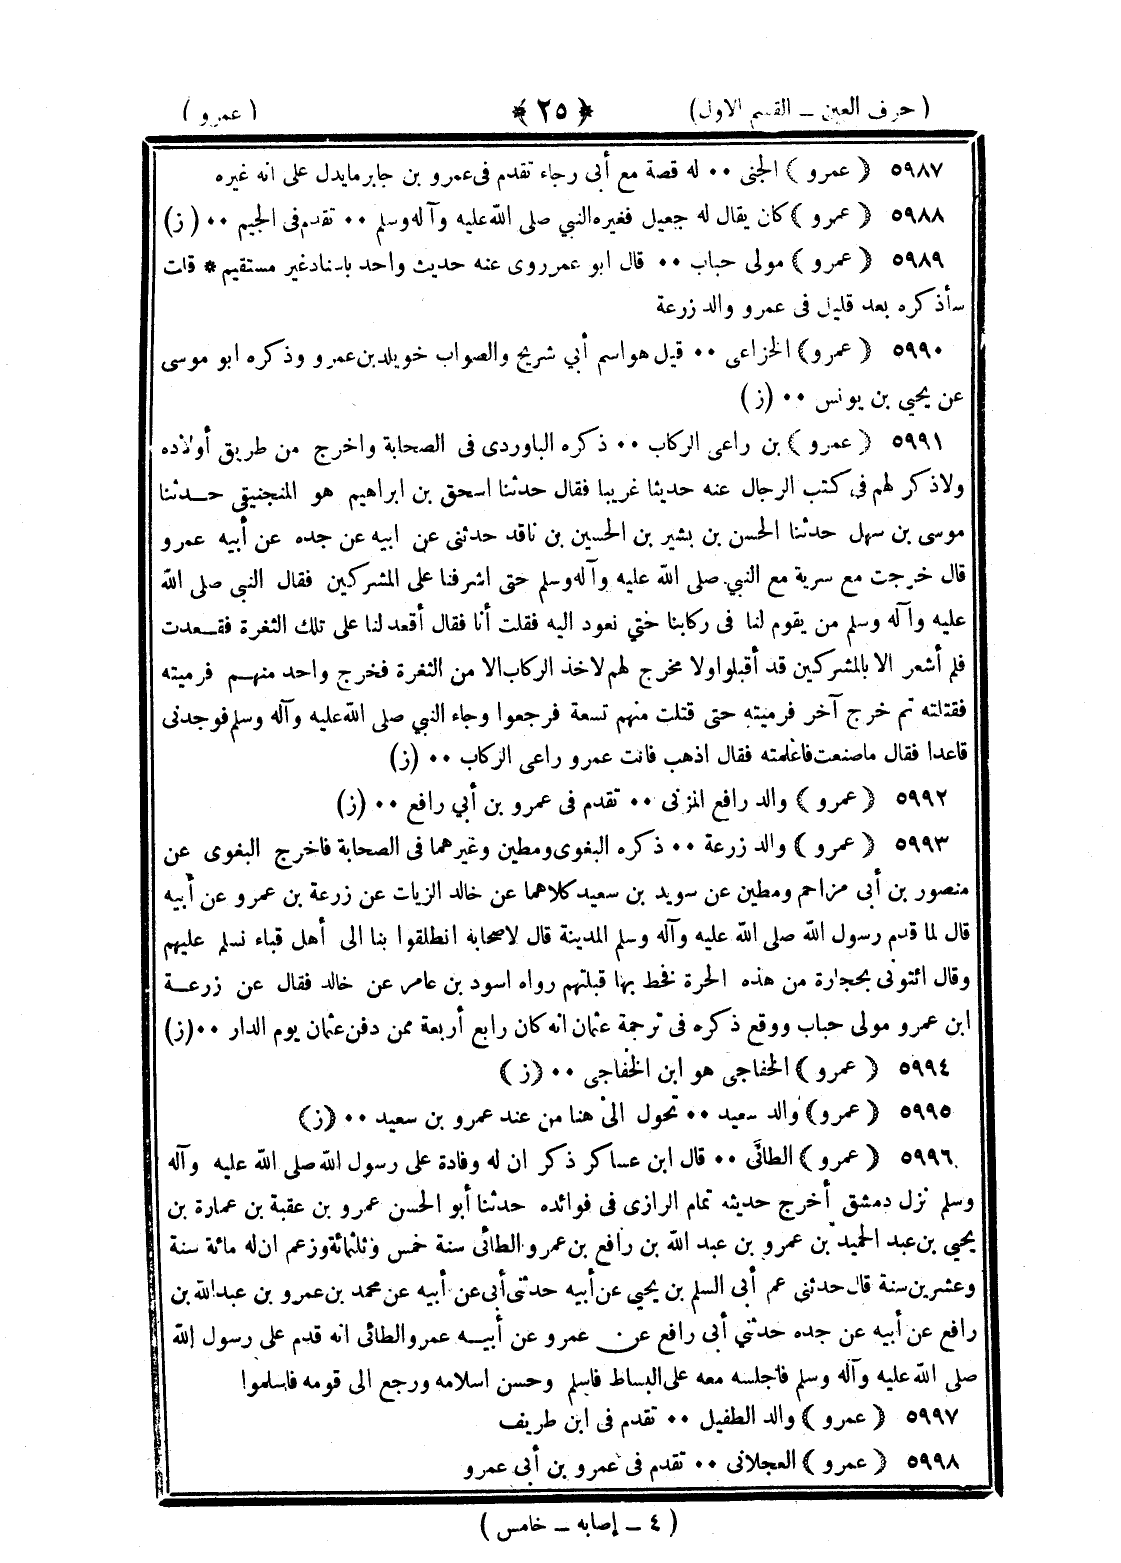 ( حرف العين ــ القسم الاول) ﴿ ٢٥ ﴾ ( عمرو )
٥٩٨٧ ( عمرو ) الجنى ٠٠ له قصة مع أبى رجاء تقدم فى عمرو بن جابر مايدل على انه غيره
٥٩٨٨ ( عمرو ) كان يقال له جعيل فغيره النبي صلى الله عليه وآله وسلم ٠٠ تقدم فى الجيم ٠٠ ( ز )
٥٩٨٩ ( عمرو ) مولى حباب ٠٠ قال ابو عمر روى عنه حديث واحد باسناد غير مستقيم * قلت
سأذكره بعد قليل فى عمرو والد زرعة
٥٩٩٠ ( عمرو) الخزاعى ٠٠ قيل هو اسم أبي شريح والصواب خويلد بن عمرو وذكره ابو موسى
عن يحيي بن يونس ٠٠ (ز )
٥٩٩١ ( عمرو ) بن راعى الركاب ٠٠ ذكره الباوردى فى الصحابة واخرج من طريق أولاده
ولاذكر لهم فى كتب الرجال عنه حديثا غريبا فقال حدثنا اسحق بن ابراهيم هو المنجنيقى حــدثنا
موسى بن سهل حدثنا الحسن بن بشير بن الحسين بن ناقد حدثنى عن ابيه عن جده عن أبيه عمرو
قال خرجت مع سرية مع النبي صلى الله عليه وآله وسلم حتى اشرفنا على المشركين فقال النبي صلى الله
عليه وآله وسلم من يقوم لنا فى ركابنا حتي نعود اليه فقلت أنا فقال أقعد لنا على تلك الثغرة فقــعدت
فلم أشعر الا بالمشركين قد أقبلوا ولا مخرج لهم لاخذ الركاب الا من الثغرة فخرج واحد منهــم فرميته
فقتلته ثم خرج آخر فرميته حتى قتلت منهم تسعة فرجعوا وجاء النبي صلى الله عليه وآله وسلم فوجدنى
قاعدا فقال ماصنعت فاعلمته فقال اذهب فانت عمرو راعى الركاب ٠٠ (ز)
٥٩٩٢ ( عمرو ) والد رافع المزنى ٠٠ تقدم فى عمرو بن أبي رافع ٠٠ (ز)
٥٩٩٣ ( عمرو ) والد زرعة ٠٠ ذكره البغوى ومطين وغيرهما فى الصحابة فاخرج البغوى عن
منصور بن أبى مزاحم ومطين عن سويد بن سعيد كلاهما عن خالد الزيات عن زرعة بن عمرو عن أبيه
قال لما قدم رسول الله صلى الله عليه وآله وسلم المدينة قال لاصحابه انطلقوا بنا الى أهل قباء نسلم عليهم
وقال ائتونى بحجارة من هذه الحرة فخط بها قبلتهم رواه اسود بن عامر عن خالد فقال عن زرعــة
ابن عمرو مولى حباب ووقع ذكره فى ترجمة عثمان انه كان رابع أربعة ممن دفن عثمان يوم الدار ٠٠ (ز)
٥٩٩٤ ( عمرو ) الخفاجى هو ابن الخفاجى ٠٠ (ز )
٥٩٩٥ ( عمرو) والد سعيد ٠٠ تحول الى هنا من عند عمرو بن سعيد ٠٠ (ز)
٥٩٩٦ ( عمرو ) الطائى ٠٠ قال ابن عساكر ذكر ان له وفادة على رسول الله صلى الله عليه وآله
وسلم نزل دمشق أخرج حديثه تمام الرازى فى فوائده حدثنا أبو الحسن عمرو بن عقبة بن عمارة بن
يحيي بن عبد الحميد بن عمرو بن عبد الله بن رافع بن عمرو الطائى سنة خمس وثلثمائة وزعم ان له مائة سنة
وعشرين سنة قال حدثنى عم أبى السلم بن يحيي عن أبيه حدثنى أبى عن أبيه عن محمد بن عمرو بن عبد الله بن
رافع عن أبيه عن جده حدثني أبى رافع عن عمرو عن أبيــه عمرو الطائى انه قدم على رسول الله
صلى الله عليه وآله وسلم فاجلسه معه على البساط فاسلم وحسن اسلامه ورجع الى قومه فاسلموا
٥٩٩٧ ( عمرو ) والد الطفيل ٠٠ تقدم فى ابن طريف
٥٩٩٨ ( عمرو ) العجلانى ٠٠ تقدم فى عمرو بن أبى عمرو
( ٤ ــ إصابه ــ خامس )